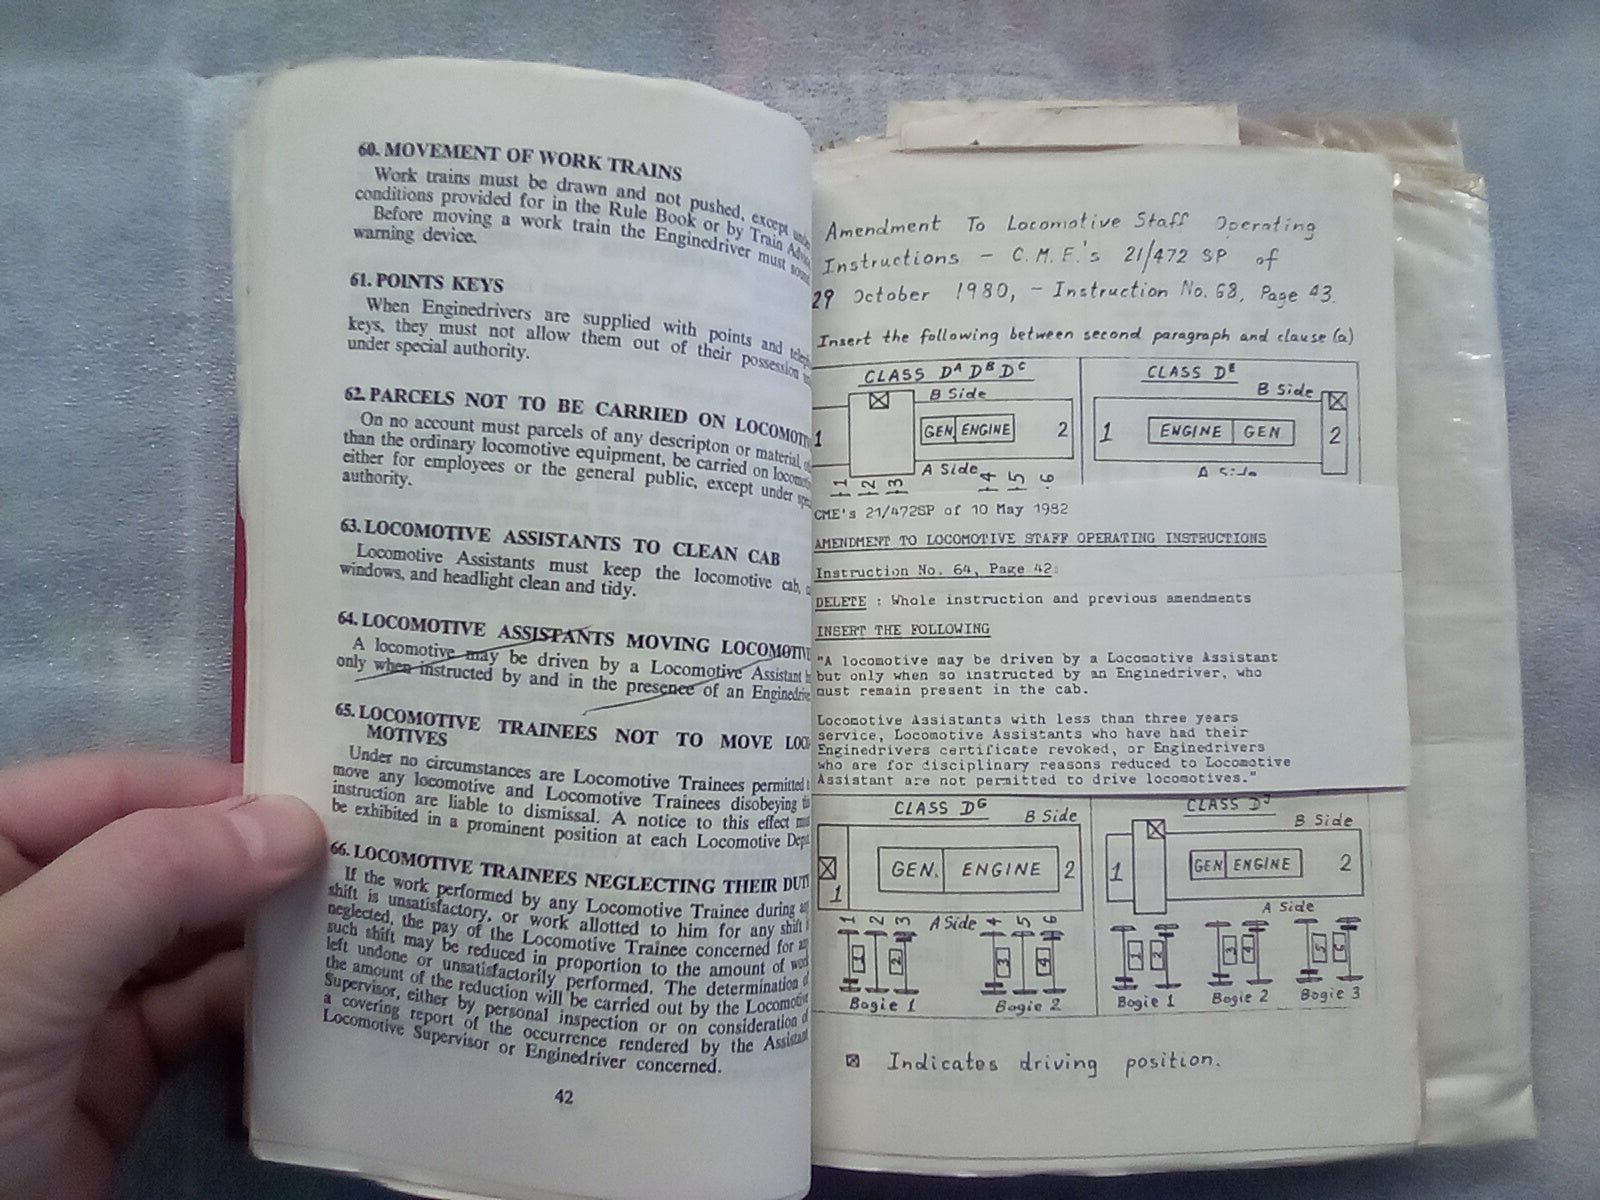 60. MOVEMENT OF WORK TRAINS
Work trains must be drawn and not pushed, except under
conditions provided for in the Rule Book or by Train
Before moving a work train the Enginedriver must sound
warning device.
61. POINTS KEYS
When Enginedrivers are supplied with points and
keys, they must not allow them out of their possession
under special authority.
62. PARCELS NOT TO BE CARRIED ON
On no account must parcels of any descripton or material,
than the ordinary locomotive equipment, be carried on
either for employees or the general public, except under
authority.
63. LOCOMOTIVE ASSISTANTS TO CLEAN CAB
Locomotive Assistants must keep the locomotive cab,
windows, and headlight clean and tidy.
64. LOCOMOTIVE ASSISTANTS MOVING
A locomotive may be driven by a Locomotive Assistant
only when instructed by and in the presence of an
65. LOCOMOTIVE TRAINEES NOT TO MOVE
MOTIVES
Under no circumstances are Locomotive Trainees permitted
move any locomotive and Locomotive Trainees disobeying
instruction are liable to dismissal. A notice to this effect
be exhibited in a prominent position at each Locomotive
66. LOCOMOTIVE TRAINEES NEGLECTING THEIR
If the work performed by any Locomotive Trainee during
shift is unsatisfactory, or work allotted to him for any shift
neglected, the pay of the Locomotive Trainee concerned for
such shift may be reduced in proportion to the amount of
left undone or unsatisfactorily performed. The determination
the amount of the reduction will be carried out by the Locomotive
Supervisor, either by personal inspection or on consideration of
a covering report of the occurrence rendered by the Assistant
Locomotive Supervisor or Enginedriver concerned.
42
Amendment To Locomotive Staff Operating
Instructions - C.M.E.'s 21/472 SP of
29 October 1980, - Instruction No. 68, Page 43.
Insert the following between second paragraph and clause (a)
CLASS DA DB DC
B Side
1
GEN ENGINE
2
A Side
1 2 3 4 5 6
CLASS DE
B Side
1
ENGINE GEN
2
A Side
CME's 21/472SP of 10 May 1982
AMENDMENT TO LOCOMOTIVE STAFF OPERATING INSTRUCTIONS
Instruction No. 64, Page 42:
DELETE : Whole instruction and previous amendments
INSERT THE FOLLOWING
"A locomotive may be driven by a Locomotive Assistant
but only when so instructed by an Enginedriver, who
must remain present in the cab.
Locomotive Assistants with less than three years
service, Locomotive Assistants who have had their
Enginedrivers certificate revoked, or Enginedrivers
who are for disciplinary reasons reduced to Locomotive
Assistant are not permitted to drive locomotives."
CLASS DG
B Side
GEN. ENGINE
2
1
1 2 3 A Side 4 5 6
1 2 3 4
Bogie 1 Bogie 2
CLASS DJ
B Side
1
GEN ENGINE
2
A Side
1 2 3 4 5 6
Bogie 1 Bogie 2 Bogie 3
Indicates driving position.